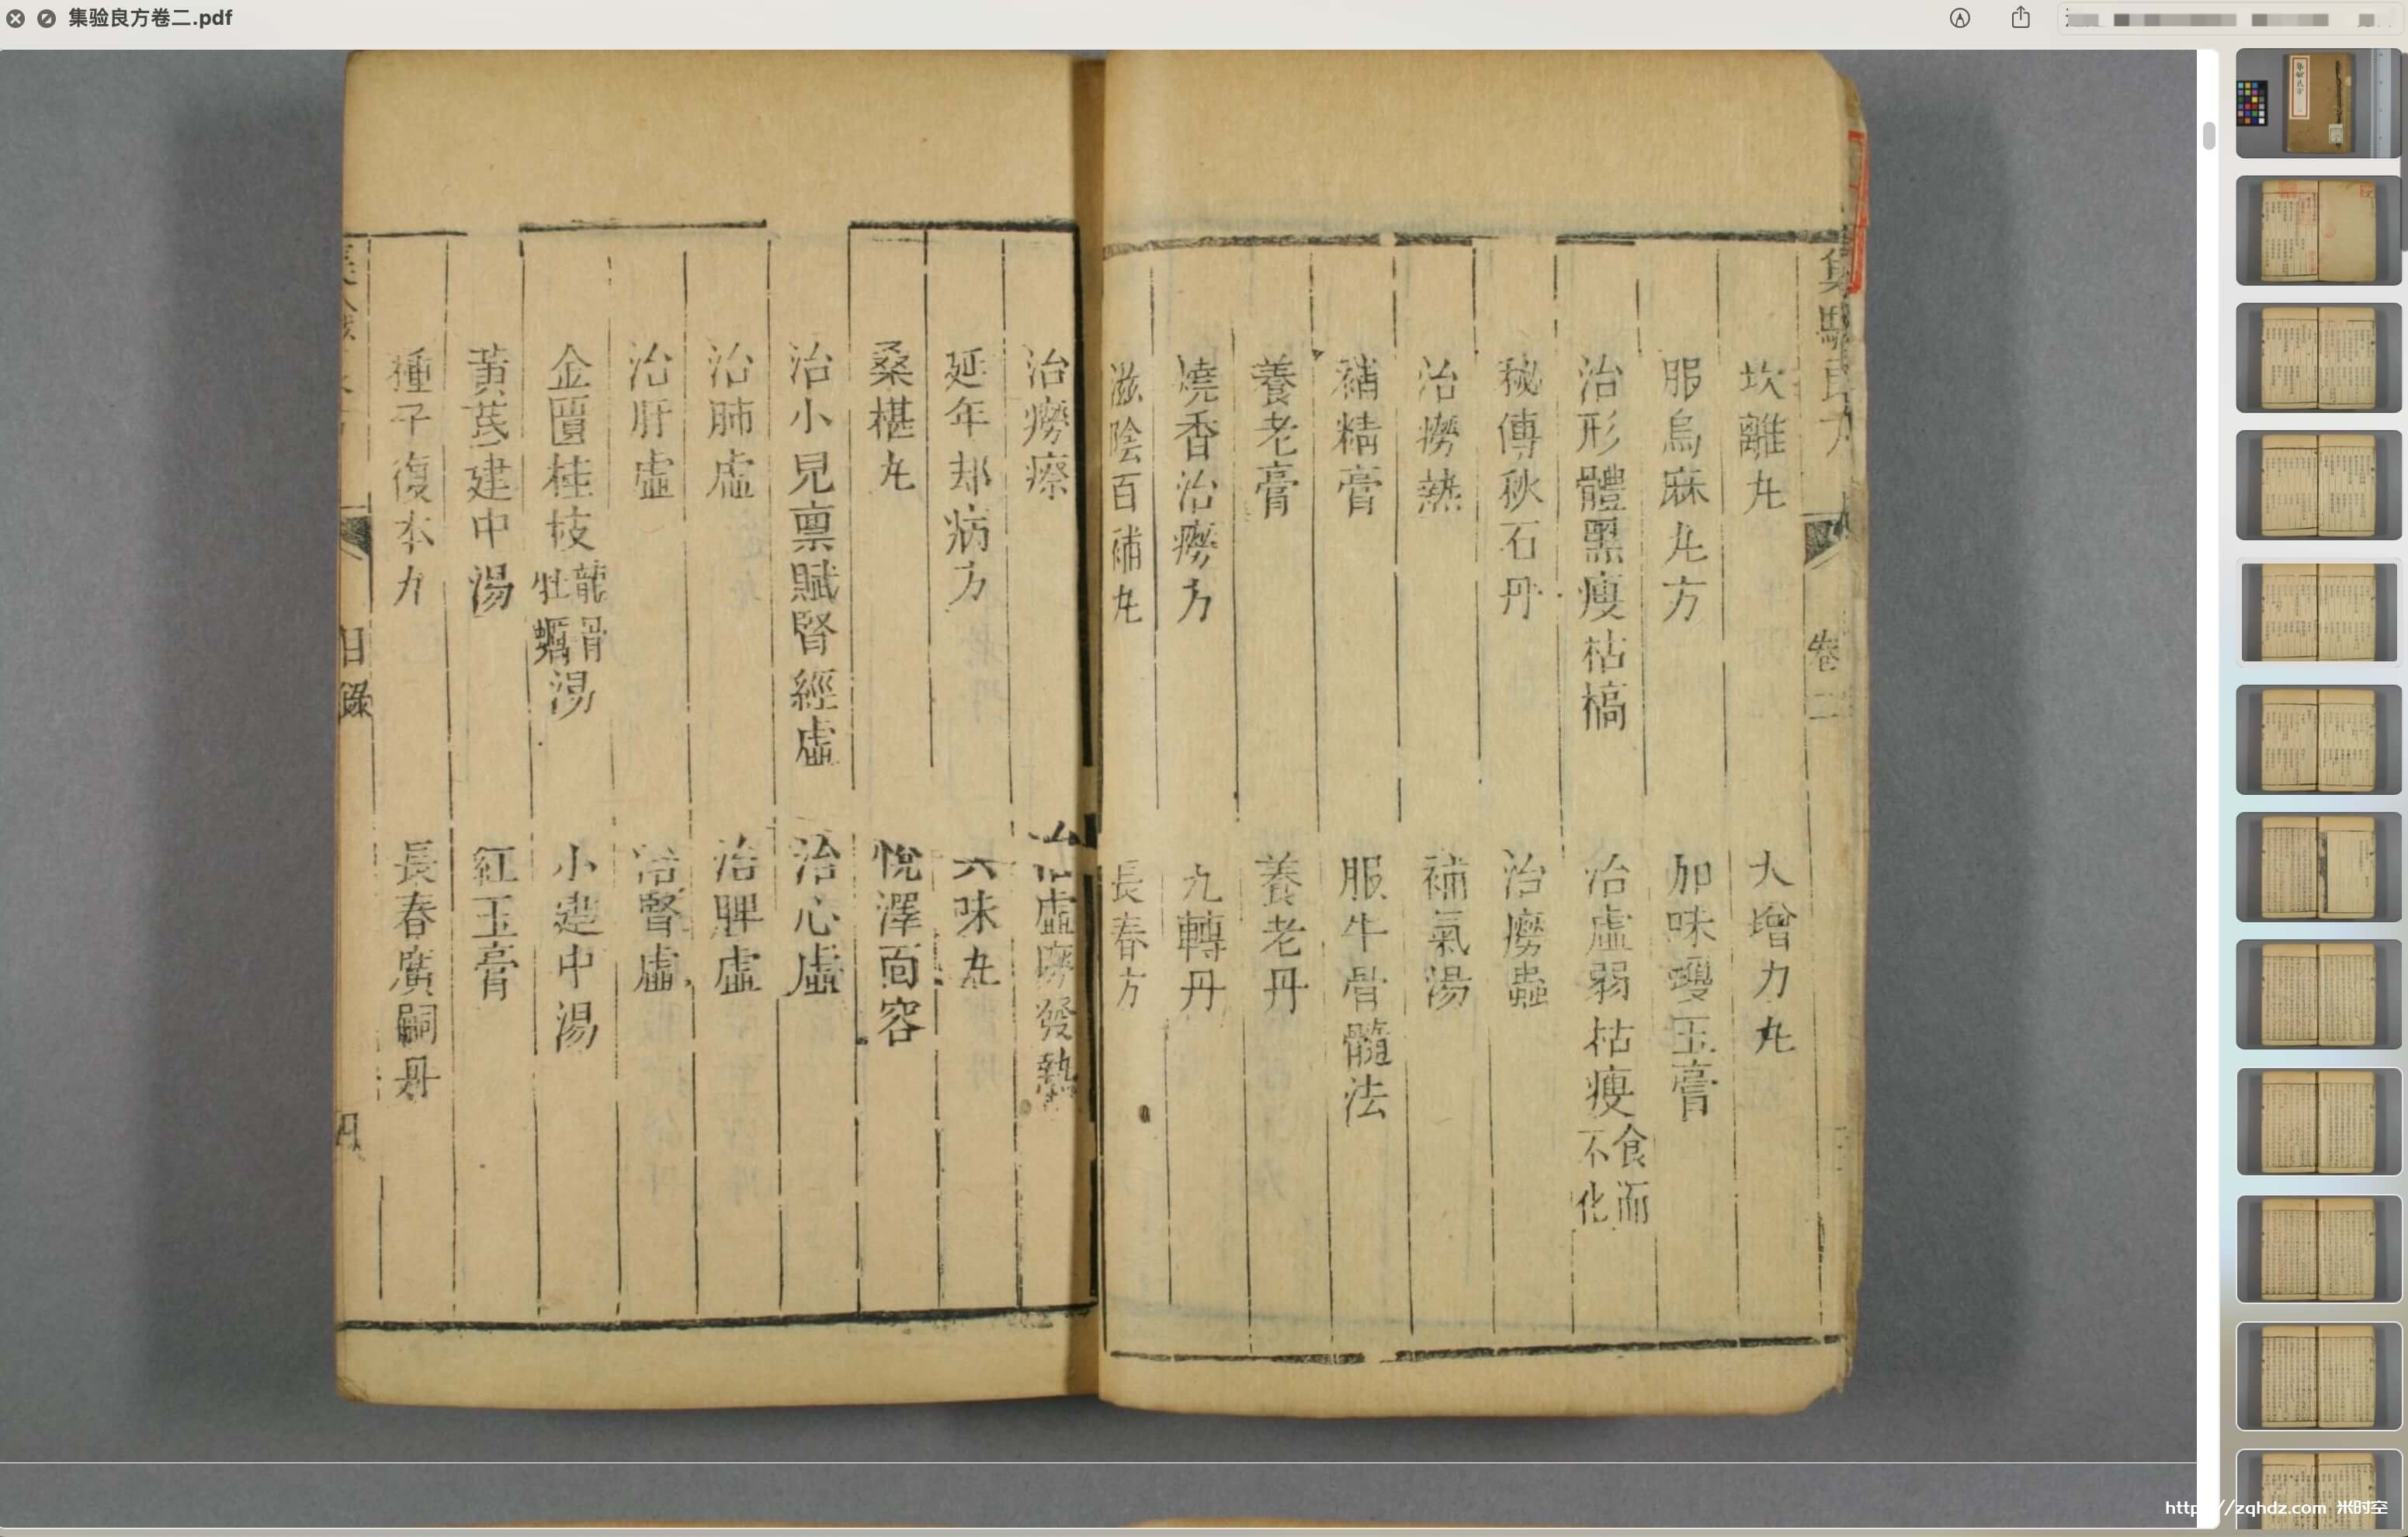 集验良方卷二.pdf
集驗良方
卷二
坎離丸
大增力丸
服烏麻丸方
加味瓊玉膏
治形體黑瘦枯槁
治虛弱枯瘦食而不化
秘傳秋石丹
治癆蟲
治癆熱
補氣湯
補精膏
服牛骨髓法
養老膏
養老丹
燒香治癆方
九轉丹
滋陰百補丸
長春方
治癆瘵
治虛癆發熱
延年却病方
六味丸
桑椹丸
悅澤面容
治小兒禀賦腎經虛
治心虛
治肺虛
治脾虛
治肝虛
治腎虛
金匱桂枝龍骨牡蠣湯
小建中湯
黃芪建中湯
紅玉膏
種子復本方
長春廣嗣丹
目錄
https://zqhdz.com 米时空